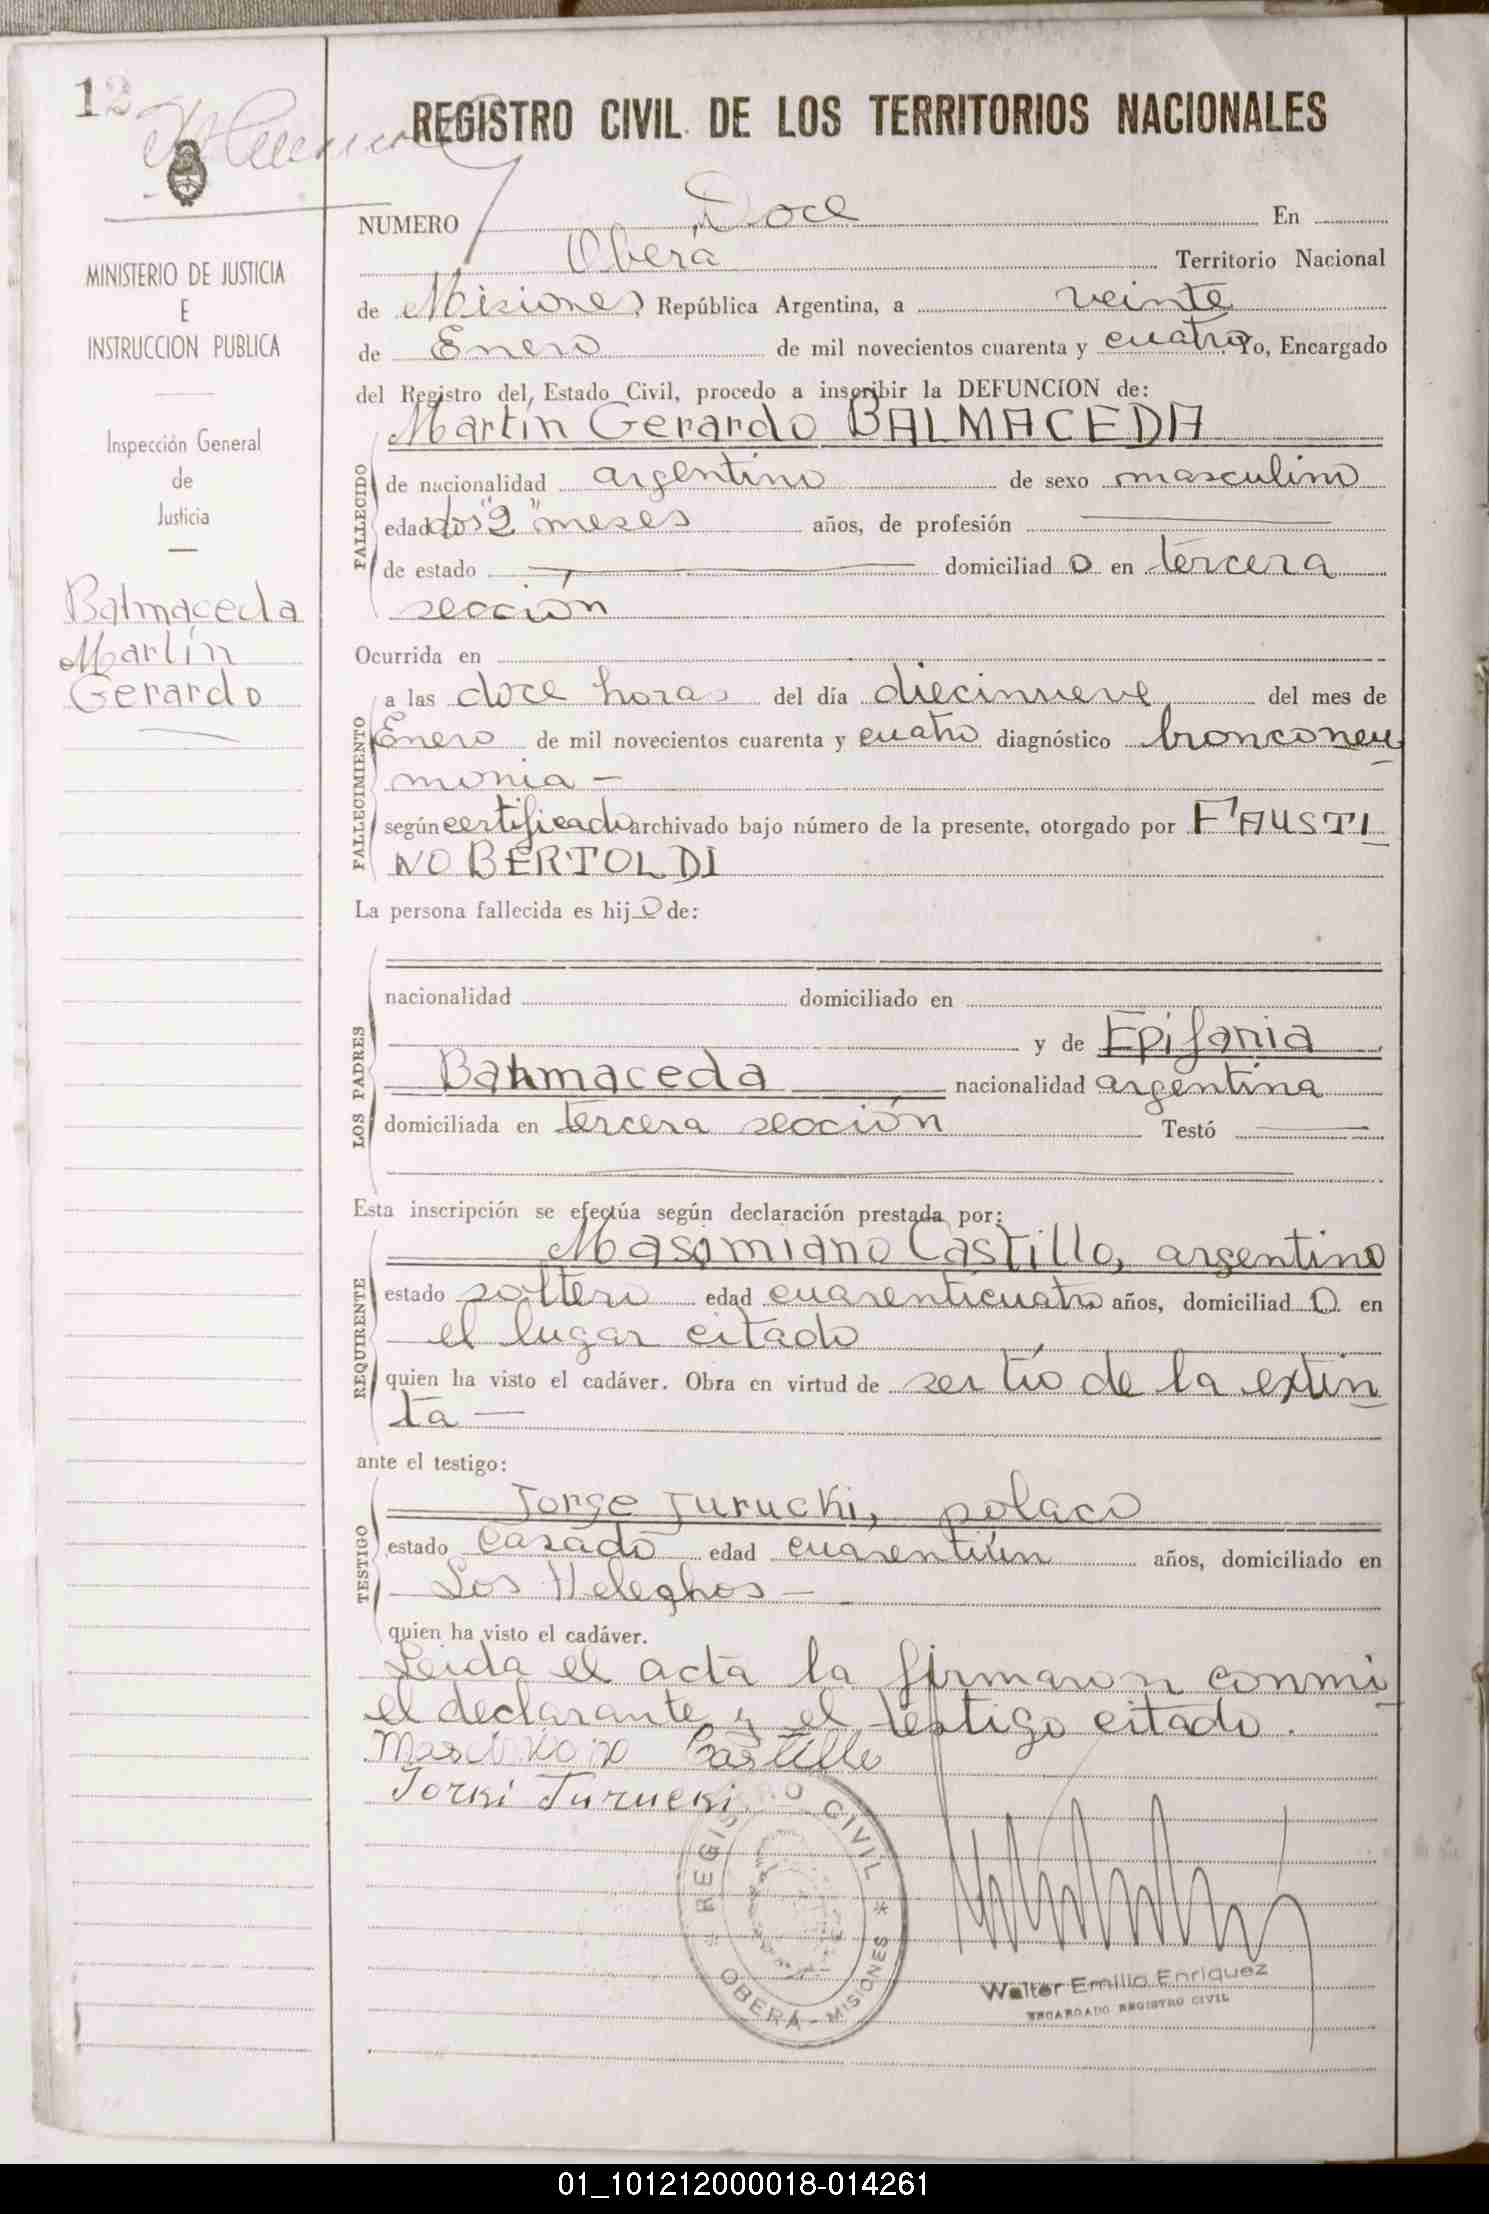 12
REGISTRO CIVIL DE LOS TERRITORIOS NACIONALES
MINISTERIO DE JUSTICIA
E
INSTRUCCION PUBLICA
Inspección General
de
Justicia
Balmaceda
Martín
Gerardo
NUMERO Doce En
Oberá Territorio Nacional
de Misiones, República Argentina, a veinte
de Enero de mil novecientos cuarenta y cuatro. Yo, Encargado
del Registro del Estado Civil, procedo a inscribir la DEFUNCION de:
FALLECIDO
Martín Gerardo BALMACEDA
de nacionalidad argentino de sexo masculino
edad dos "2" meses años, de profesión
de estado domiciliado en tercera
sección
Ocurrida en
FALLECIMIENTO
a las doce horas del día diecinueve del mes de
Enero de mil novecientos cuarenta y cuatro diagnóstico bronconeu
monia -
según certificado archivado bajo número de la presente, otorgado por FAUSTI
NO BERTOLDI
La persona fallecida es hijo de:
LOS PADRES
nacionalidad domiciliado en
y de Epifania
Balmaceda nacionalidad argentina
domiciliada en tercera sección Testó
Esta inscripción se efectúa según declaración prestada por:
REQUIRENTE
Masimiano Castillo, argentino
estado soltero edad cuarenticuatro años, domiciliado en
el lugar citado
quien ha visto el cadáver. Obra en virtud de ser tío de la extin
ta -
ante el testigo:
TESTIGO
Jorge Turucki, polaco
estado casado edad cuarentiún años, domiciliado en
Los Heleghos -
quien ha visto el cadáver.
Leida el acta la firmaron conmi
el declarante y el testigo citado.
Castillo
Jorki Turucki
REGISTRO CIVIL
OBERÁ - MISIONES
Walter Emilio Enriquez
ENCARGADO REGISTRO CIVIL
01_101212000018-014261